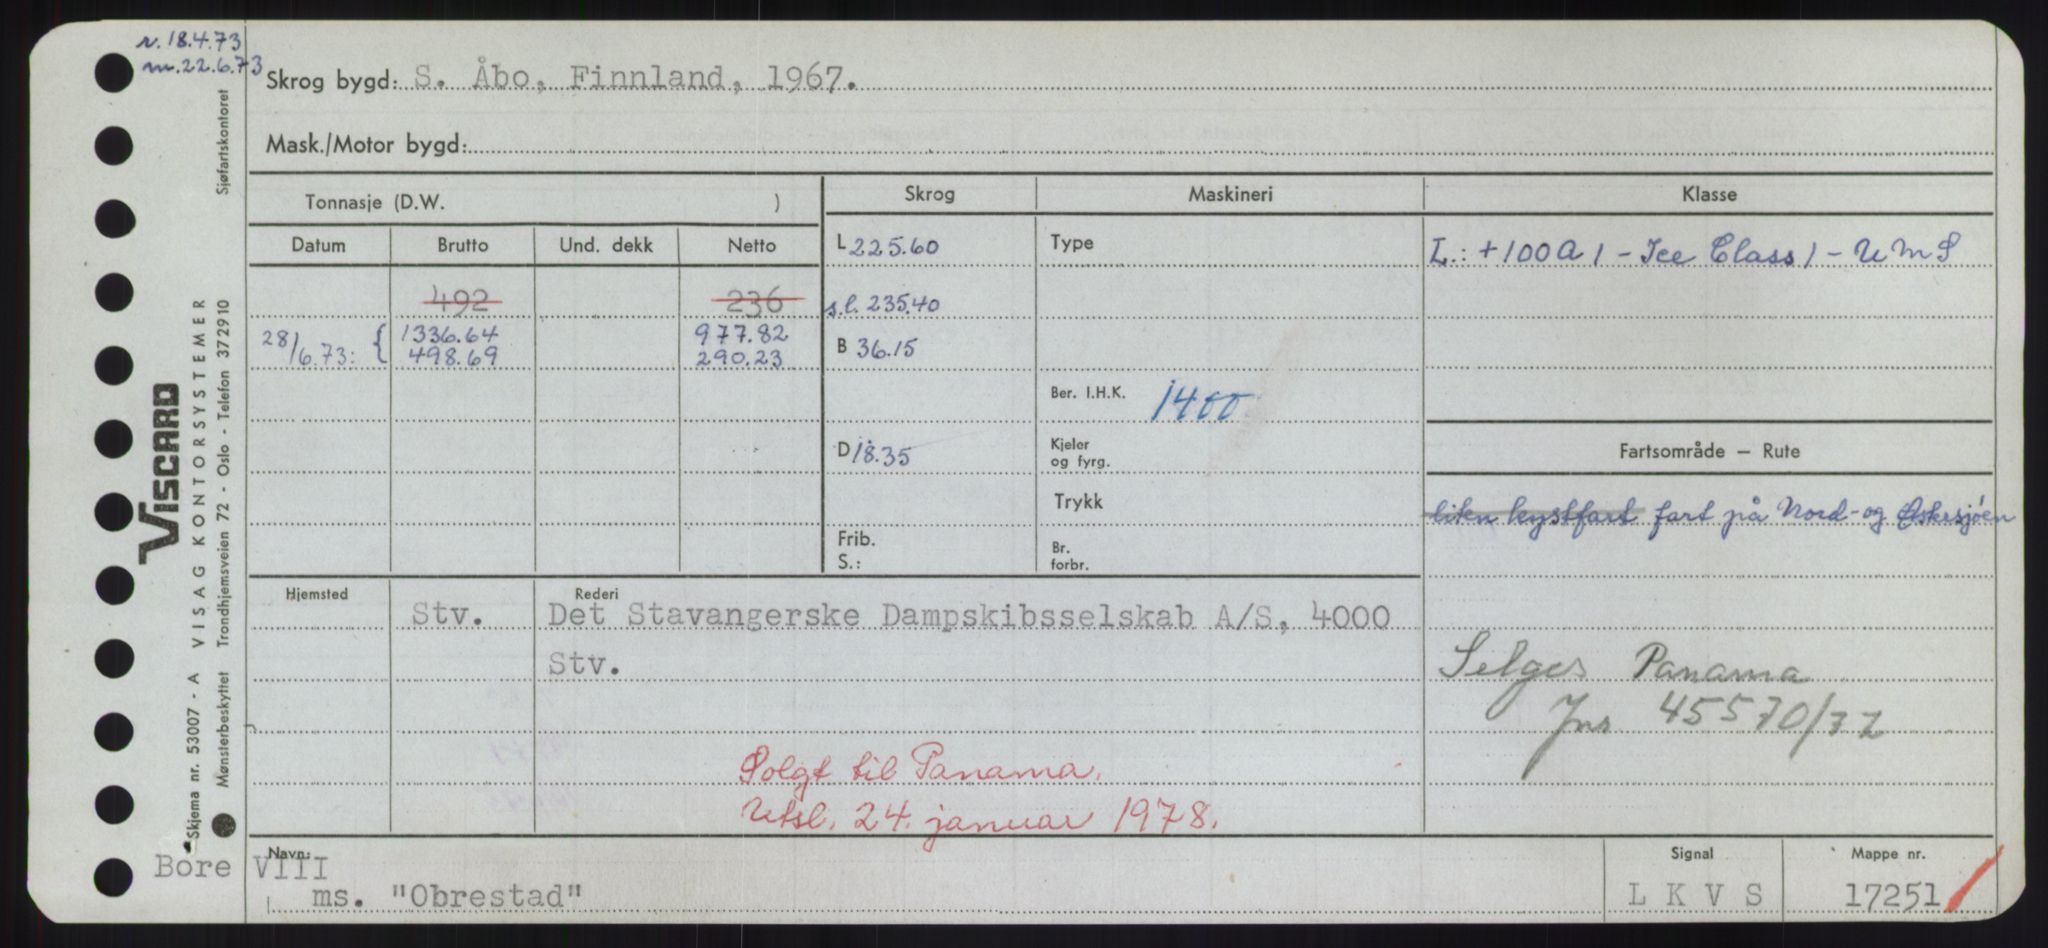 r. 18.4.73
m. 22.6.73
Skrog bygd: S. Åbo, Finnland, 1967.
Mask./Motor bygd:
Tonnasje (D.W. )
Skrog
Maskineri
Klasse
Datum
Brutto
Und. dekk
Netto
L 225.60
Type
L.: +100A1 - Ice Class 1 - UMS
492
236
s.l. 235.40
28/6.73: {
1336.64
977.82
498.69
290.23
B 36.15
Ber. I.H.K. 1400
D 18.35
Kjeler
og fyrg.
Fartsområde — Rute
Trykk
liten kystfart fart på Nord- og Østersjøen
Frib.
S.:
Br.
forbr.
Hjemsted
Rederi
Stv.
Det Stavangerske Dampskibsselskab A/S, 4000
Stv.
Selges Panama
Jnr 45570/77
Solgt til Panama.
Utsl. 24. januar 1978.
Navn:
Bore VIII
ms. "Obrestad"
Signal
L K V S
Mappe nr.
17251
Skjema nr. 53007 - A VISAG KONTORSYSTEMER
VISCARD
Mønsterbeskyttet Trondhjemsveien 72 - Oslo - Telefon 372910
Sjøfartskontoret